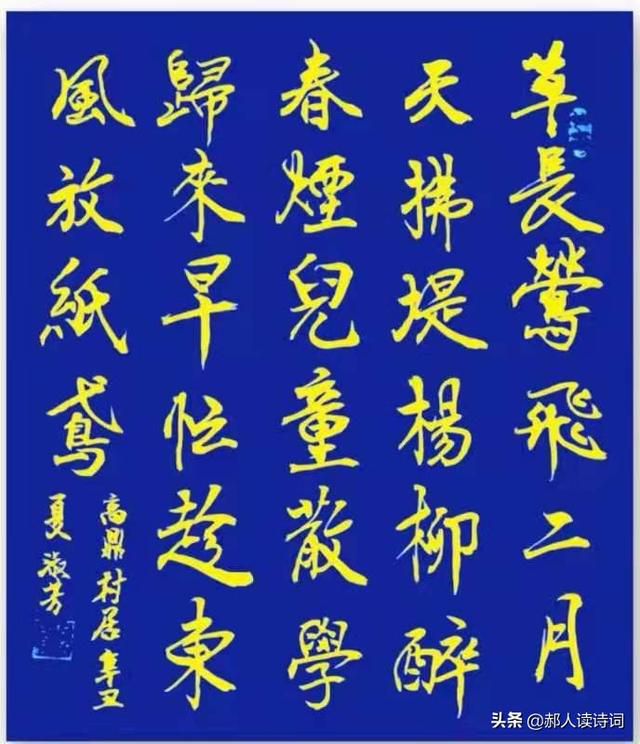 草長鶯飛二月
天拂堤楊柳醉
春煙兒童散學
歸來早忙趁東
風放紙鳶
高鼎村居辛丑
夏淑芳
头条 @郝人读诗词